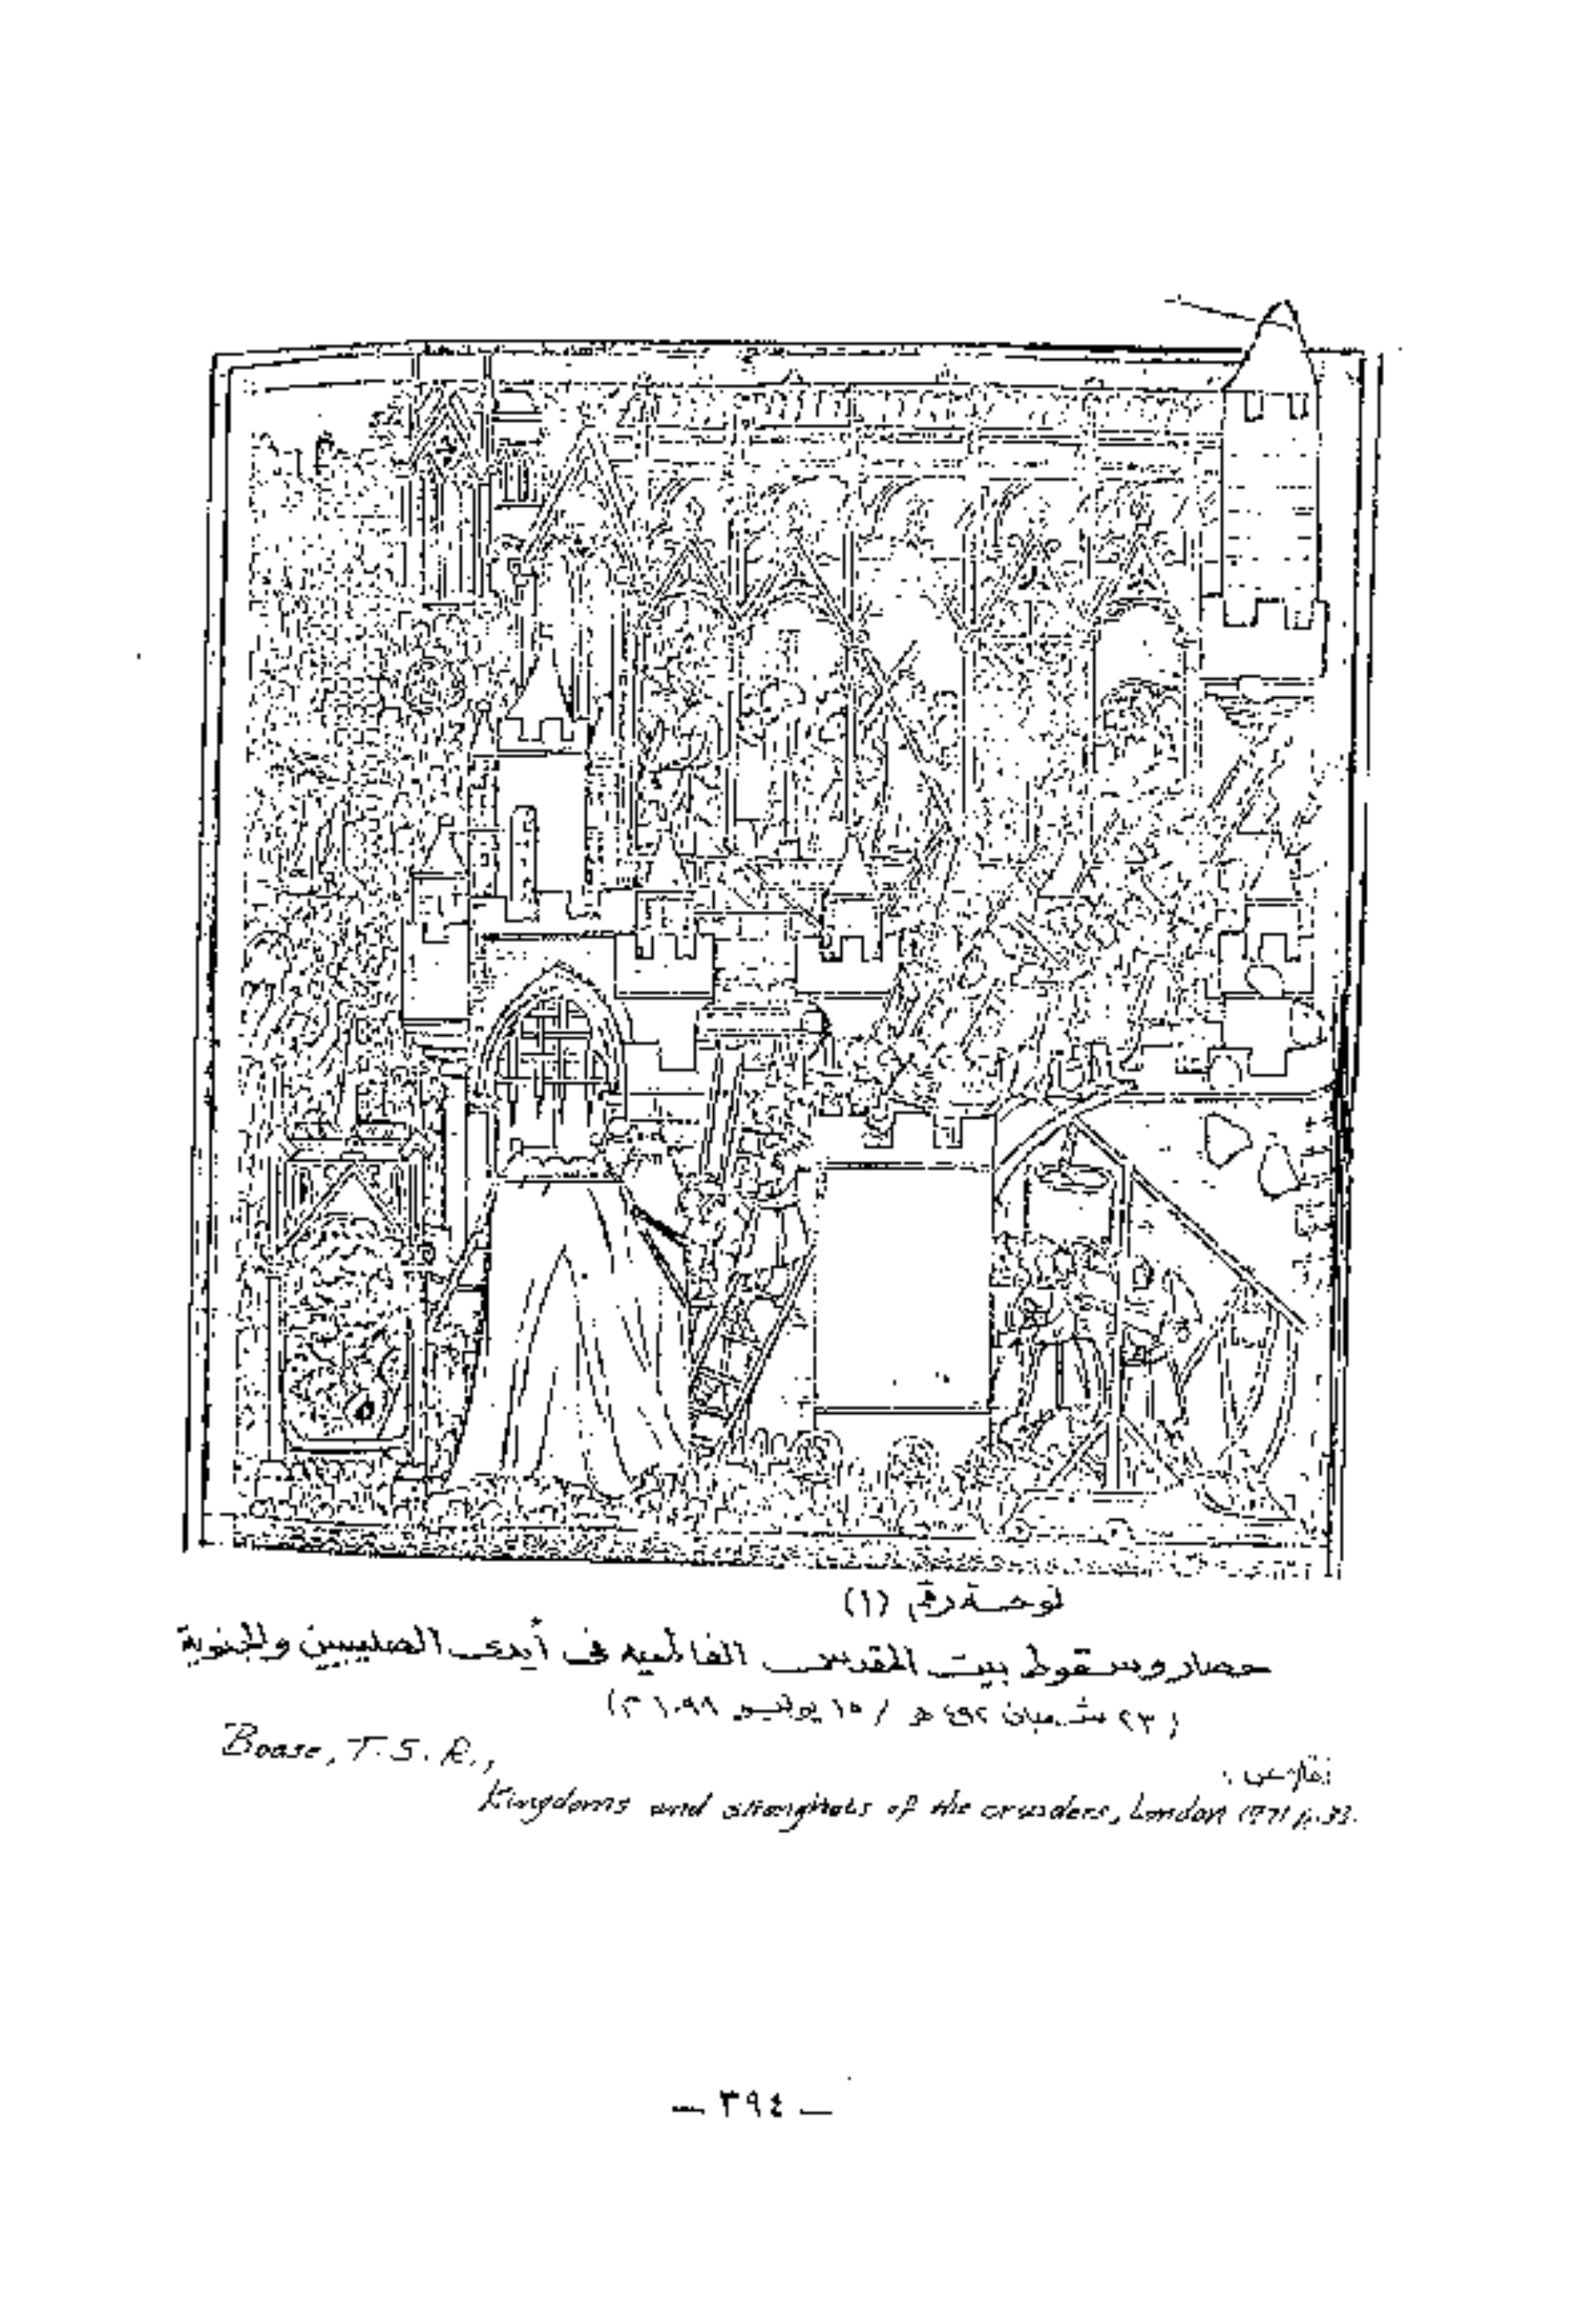 لوحة رقم (١)
حصار وسقوط بيت المقدس الفاطمية فى أيدى الصليبيين والجنوية
(٢٣ شعبان ٤٩٢ هـ / ١٥ يوليو ١٠٩٨ م)
Boase, T. S. R.,
نقلا عن :
Kingdoms and strongholds of the crusaders, London 1971 p. 32.
— ٣٩٤ —